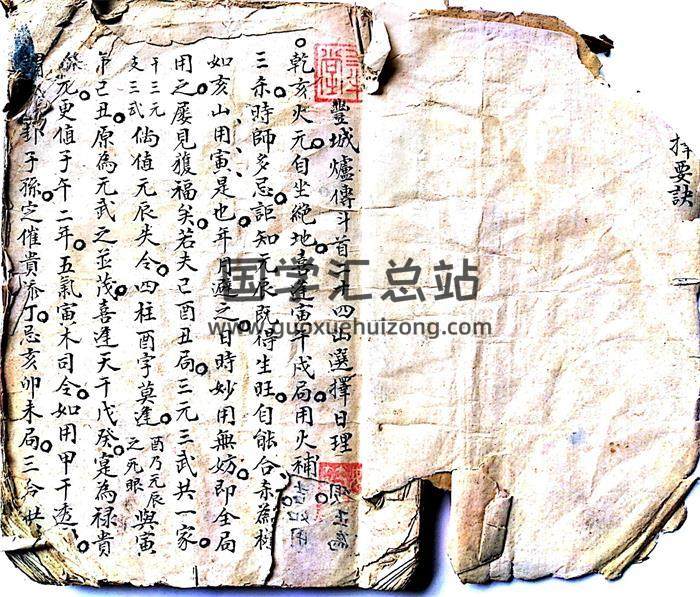 择要訣
豐城爐傳斗首二十四山選擇日理
乾亥火元自坐絕地喜逢寅午戌局用火補
三奈時師多忌詎知元辰既得生旺自能合
如亥山用寅是也年月避之日時妙用無妨即全局
用之屡見獲福矣若夫巳酉丑局三元三武共一家
干三元
支三武
倘值元辰失令四柱酉字莫逢
酉乃元辰
之死眼
與寅
弟己丑原為元武之並茂喜逢天干戊癸寔為禄貴
更值子午二年五氣寅木司令如用甲干透
子孫定催貴添丁忌亥卯未局三合
国学汇总站
www.guoxuehuizong.com